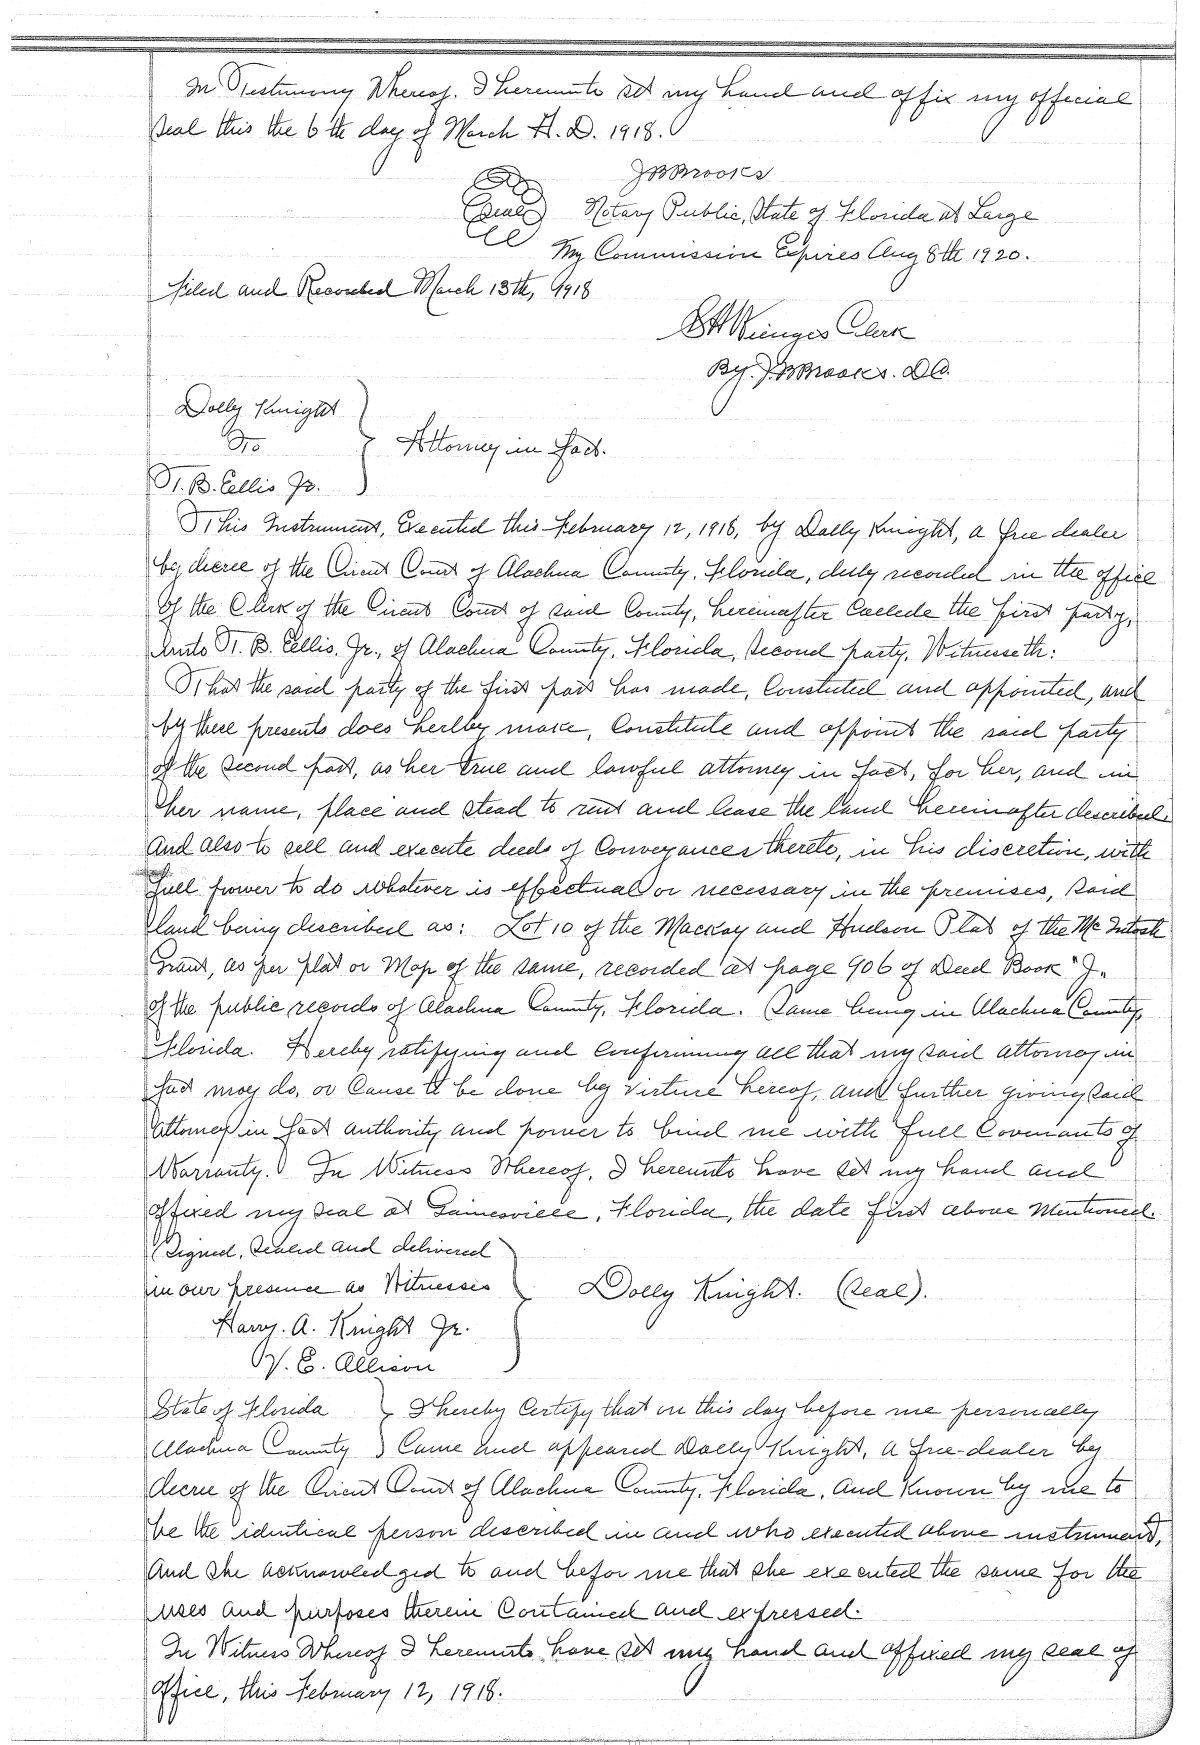 In Testimony Whereof, I hereunto set my hand and affix my official
seal this the 6th day of March A.D. 1918.
JBBrooks
(Seal) Notary Public, State of Florida at Large
My Commission Expires Aug 8th 1920.
Filed and Recorded March 13th, 1918
Clerk
By. J.BBrooks. D.C.
Dolly Knight
To
Attorney in fact.
T. B. Ellis Jr.
This Instrument, Executed this February 12, 1918, by Dolly Knight, a free dealer
by decree of the Circuit Court of Alachua County, Florida, duly recorded in the office
of the Clerk of the Circuit Court of said County, hereinafter Callede the first party,
Unto T. B. Ellis, Jr., of Alachua County, Florida, Second party, Witnesseth:
That the said party of the first part has made, Constuted and appointed, and
by these presents does hereby make, Constitute and appoint the said party
of the second part, as her true and lawful attorney in fact, for her, and in
her name, place and stead to rent and lease the land hereinafter described.
And also to sell and execute deeds of Conveyances thereto, in his discretion, with
full power to do whatever is effectual or necessary in the premises, said
land being described as: Lot 10 of the Mackay and Hudson Plat of the McIntosh
Grant, as per plat or Map of the same, recorded at page 906 of Deed Book "J"
of the public records of Alachua County, Florida. Same being in Alachua County,
Florida. Hereby ratifying and Confirming all that my said attorney in
fact may do, or Cause to be done by virture hereof, and further giving said
attorney in fact authority and power to bind me with full Covenants of
Warranty. In Witness Whereof, I hereunto have set my hand and
affixed my seal at Gainesville, Florida, the date first above Mentioned.
Signed, Sealed and delivered
in our presence as Witnesses
Dolly Knight. (Seal).
Harry. A. Knight Jr.
V. E. Allison
State of Florida I hereby Certify that on this day before me personally
Alachua County Came and appeared Dolly Knight, a free-dealer by
decree of the Circuit Court of Alachua County, Florida, And Known by me to
be the identical person described in and who executed above instrument,
And she acknowledged to and befor me that she executed the same for the
uses and purposes therein Contained and expressed.
In Witness Whereof I hereunto have set my hand and affixed my seal of
office, this February 12, 1918.